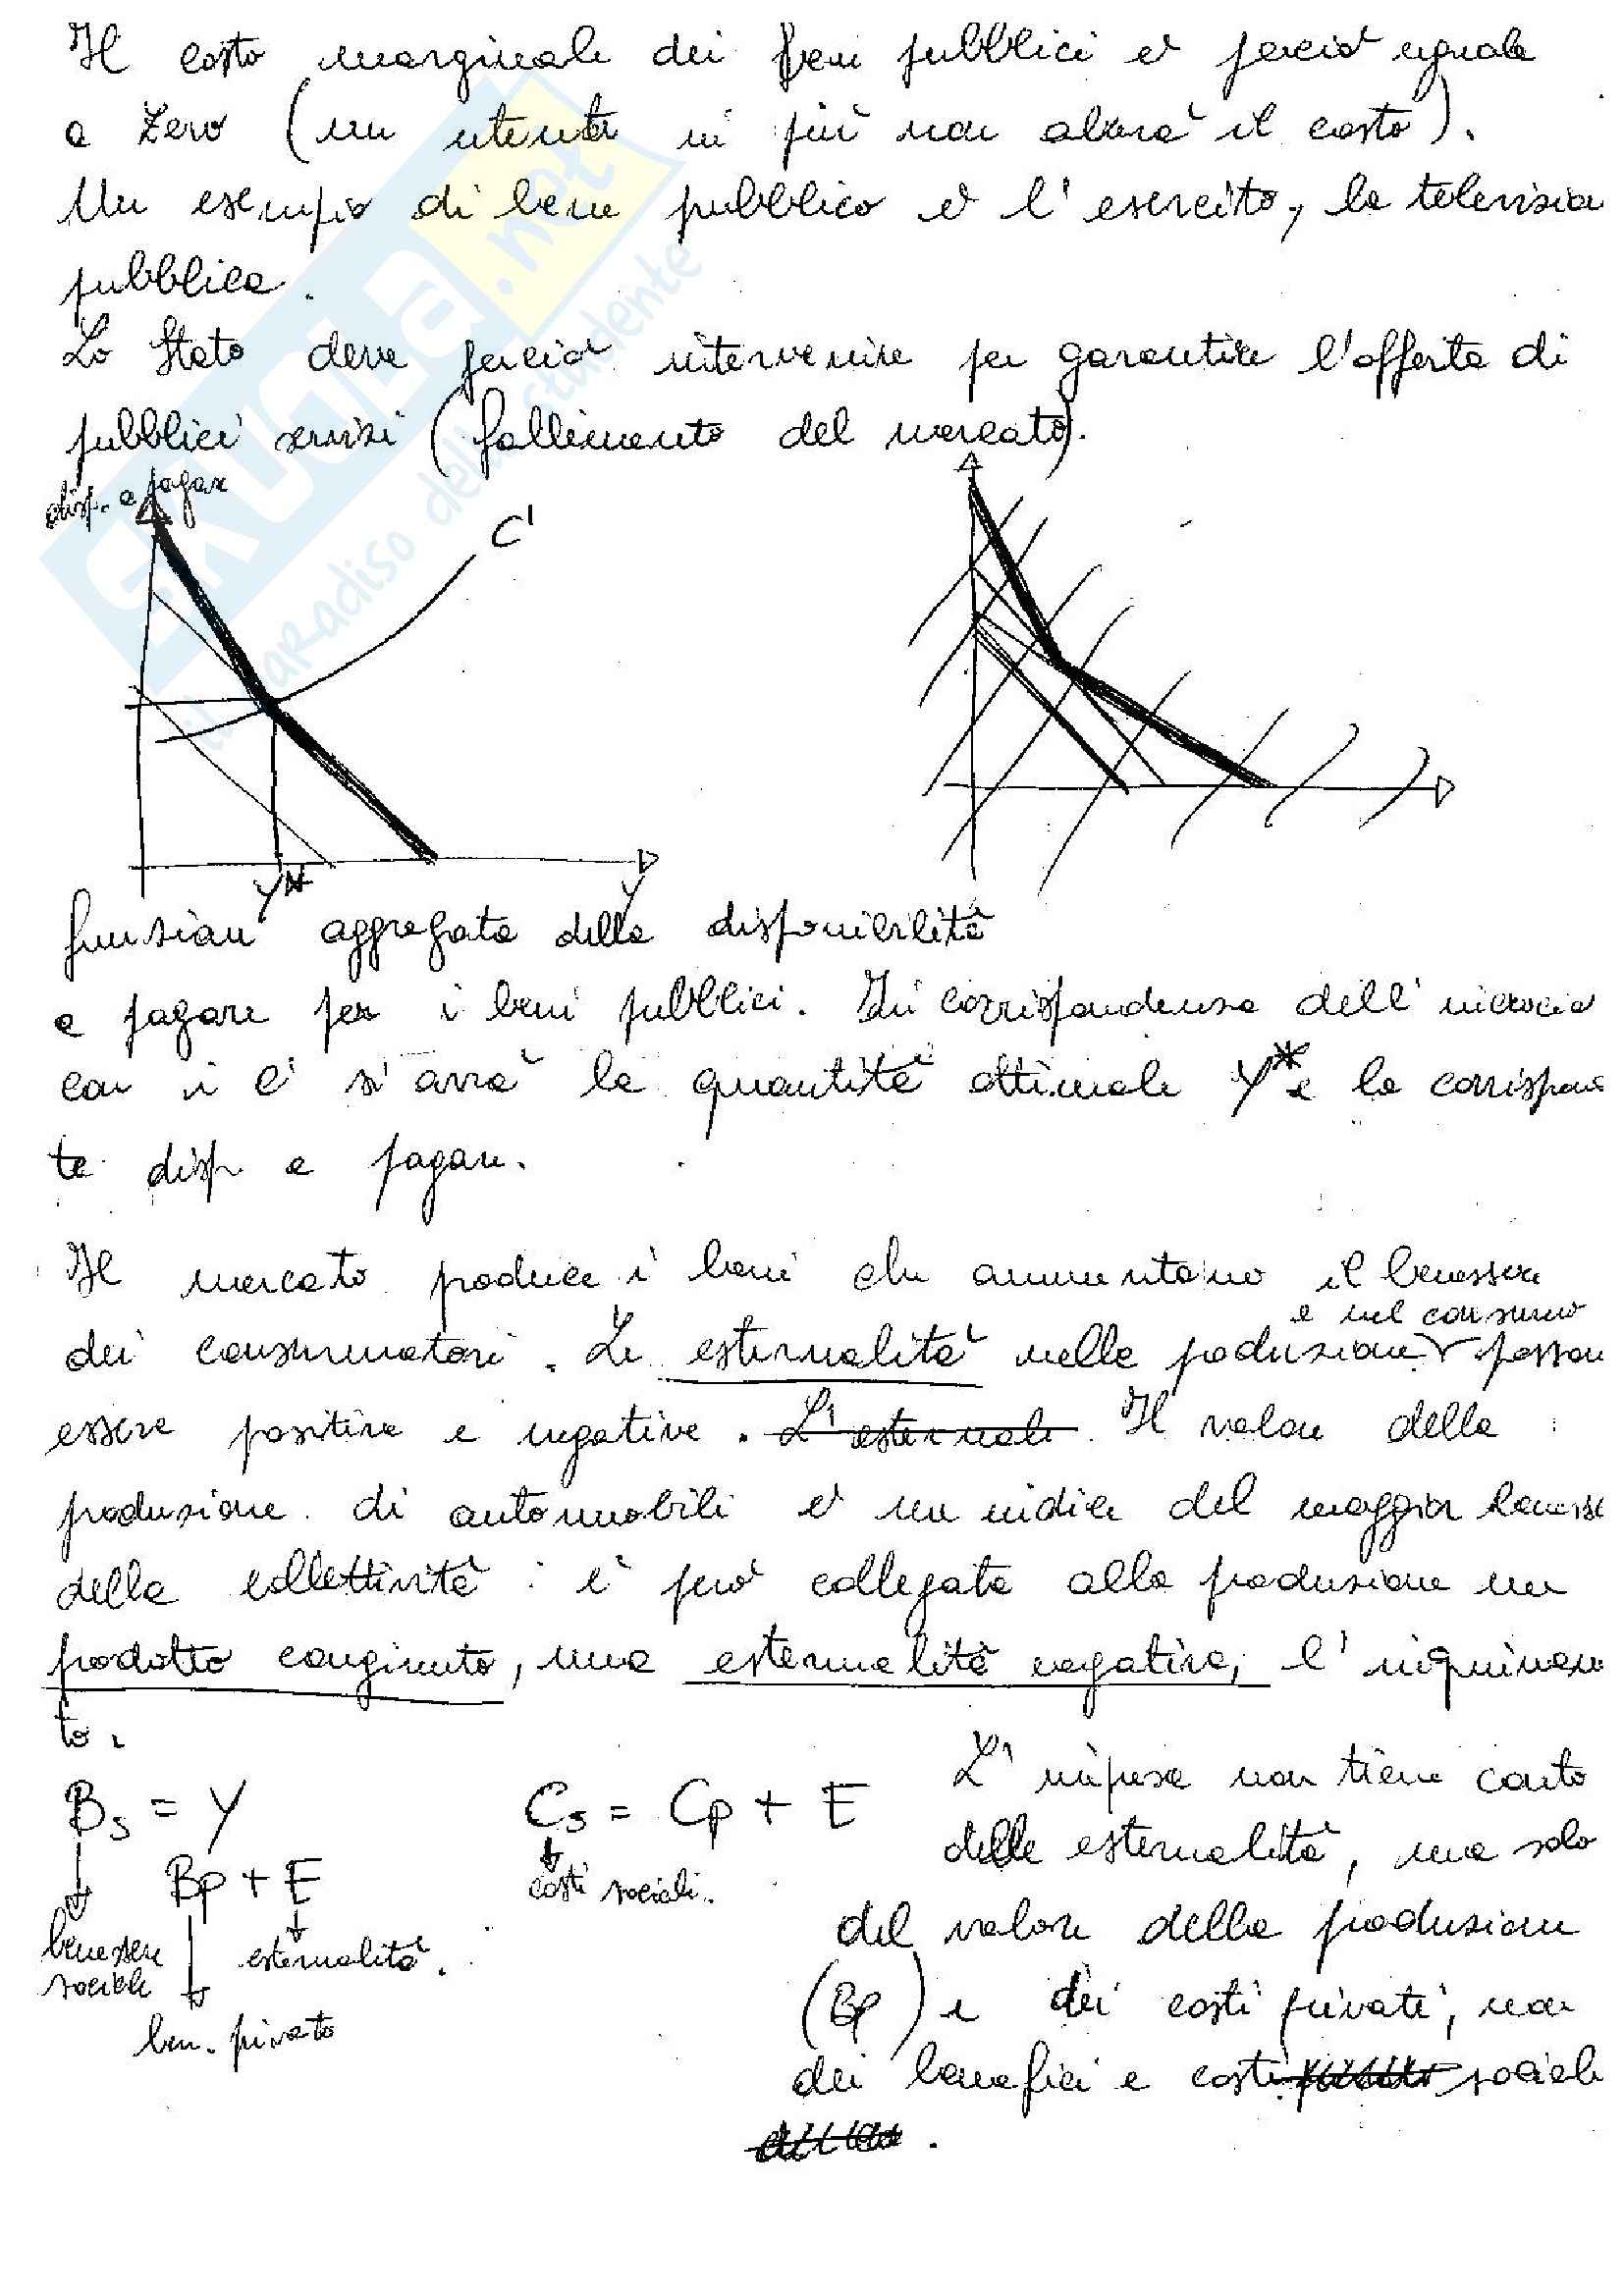 Il costo marginale dei beni pubblici è perciò uguale
a zero (un utente in più non alzerà il costo).
Un esempio di bene pubblico è l'esercito, la televisio
pubblica.
Lo Stato deve perciò intervenire per garantire l'offerta di
pubblici servizi (fallimento del mercato).
disp. a pagare
C'
Y*
Y
funzione aggregata della disponibilità
a pagare per i beni pubblici. In corrispondenza dell'incrocio
con i C' si avrà la quantità ottimale Y* e la corrispon
te disp a pagare.
Il mercato produce i beni che aumentano il benessere
e nel consumo
dei consumatori. Le esternalità nella produzione posson
essere positive e negative. L'esternali Il valore della
produzione di automobili è un indice del maggior beness
della collettività: è però collegata alla produzione un
prodotto congiunto, una esternalità negativa, l'inquinamen
to.
Bs = Y
Bp + E
benessere
sociale
esternalità.
ben. privato
Cs = Cp + E
costi sociali.
L'impresa non tiene conto
delle esternalità, ma solo
del valore della produzione
(Bp) e dei costi privati, non
dei benefici e costi sociali
.
SKUOLA.net
il paradiso dello studente